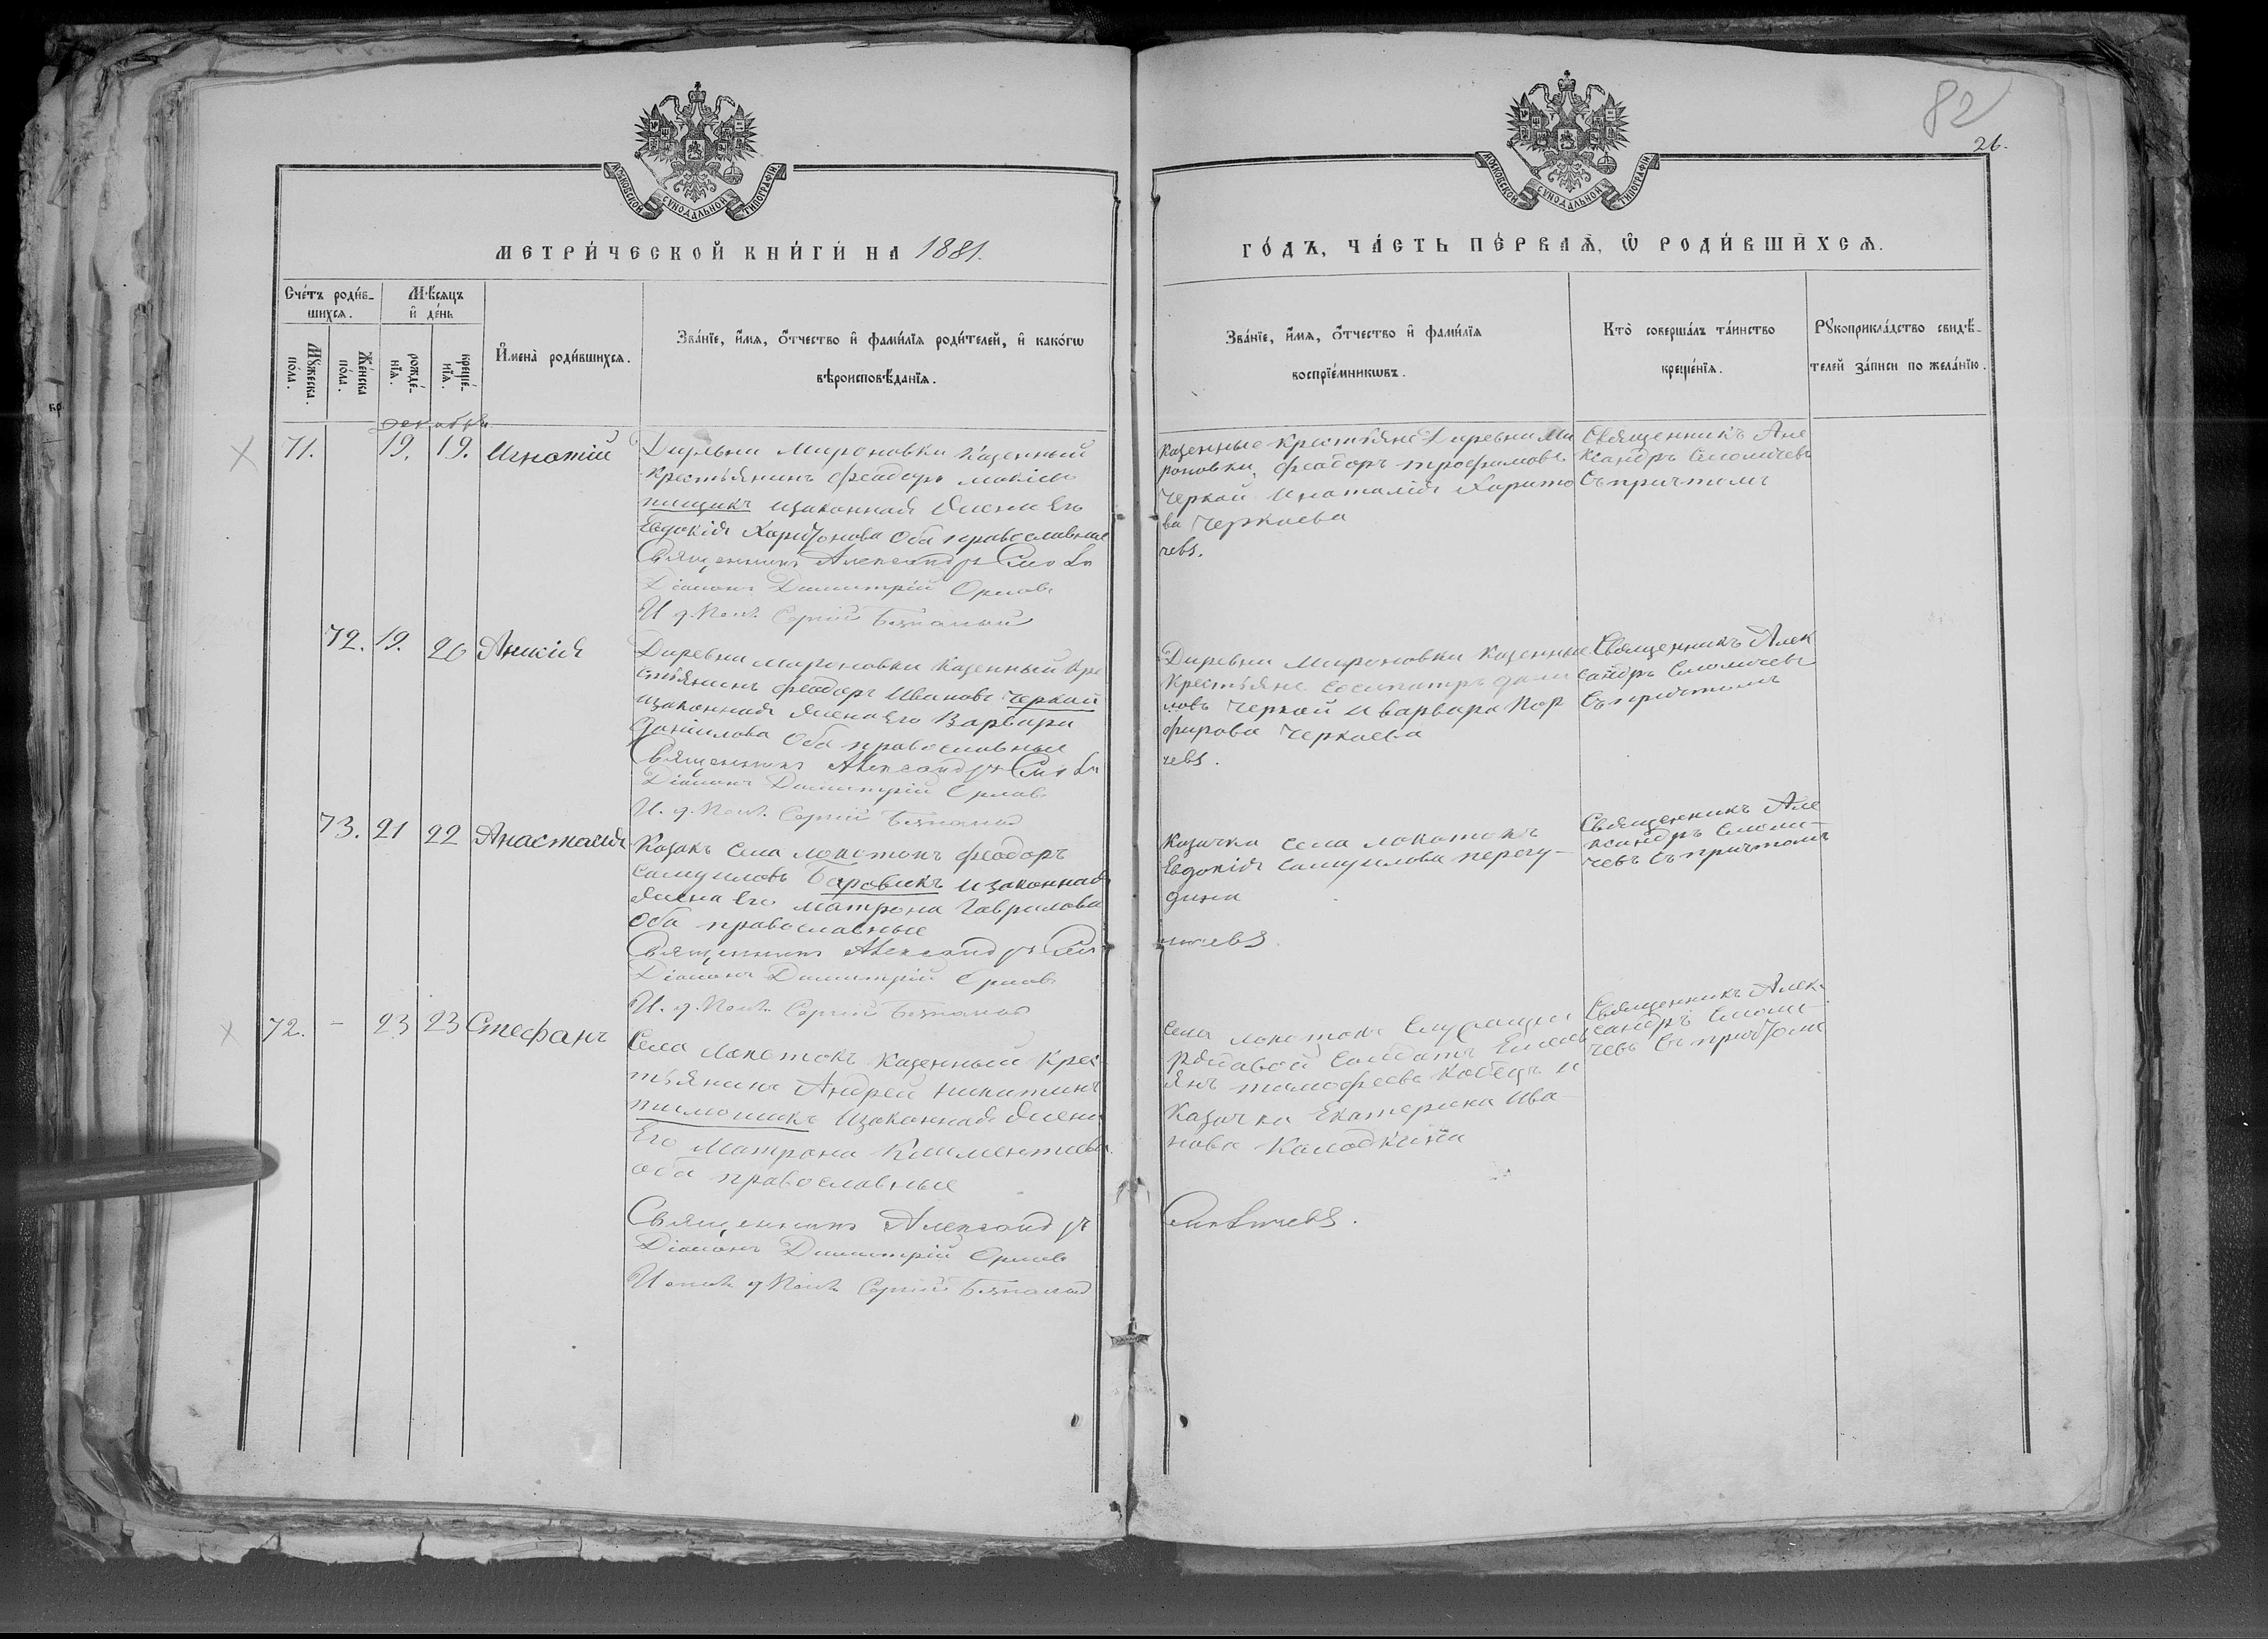 82
26.
МОСКОВСКОЙ СУНОДАЛЬНОЙ ТИПОГРАФІИ
МОСКОВСКОЙ СУНОДАЛЬНОЙ ТИПОГРАФІИ
МЕТРИ́ЧЕСКОЙ КНИ́ГИ НА 1881.
ГО́ДЪ, ЧА́СТЬ ПЕ́РВАѦ, Ѡ РОДИ́ВШИХСѦ.
Сче́тъ роди́в-
шихсѧ.
Мꙋжеска по́ла.
Же́нска по́ла.
Мѣ́сѧцъ
и҆ де́нь
рожде́-
нїѧ.
креще́-
нїѧ.
И҆мена̀ роди́вшихсѧ.
Зва́нїе, и҆́мѧ, ѻ҆́тчество и҆ фами́лїѧ роди́телей, и҆ како́гѡ
вѣроисповѣ́данїѧ.
Зва́нїе, и҆́мѧ, ѻ҆́тчество и҆ фами́лїѧ
воспрїе́мникѡвъ.
Кто̀ соверша́лъ та́инство
креще́нїѧ.
Рꙋкоприкла́дство свидѣ́-
телей за́писи по жела́нїю.
декабрь
71. 19. 19. Игнатій
Диревни Мироновки Казенный
Крестьянинъ Феодоръ
изаконная Жена Его
Евдокія Харитонова Оба православные
Священникъ Александръ Смо
Діаконъ Димитрій Орловъ
И. д. Псал. Сергій
Казенные Крестьяне Диревни Ми
роновки Феодоръ трофимовъ
Черкай Инаталія Харито
ва Черкаева
чевъ.
Священникъ Але
ксандръ Смоличевъ
Съ причтомъ
72. 19. 20
Диревни Мироновки Казенный Кре
стьянинъ Феодоръ Ивановъ Черкай
изаконная Жена Его Варвара
Данiилова Оба православные
Священникъ Александръ Смо
Діаконъ Димитрій Орловъ
И. д. Псал. Сергій
Диревни Мироновки Казенные
Крестьяне Сосипатръ дани
ловъ Черкай и варвара Пор
фирова Черкаева
чевъ.
Священникъ Алек
сандръ Смоличевъ
Съ причтомъ
73. 21 22 Анастасія
Козакъ села локотокъ феодоръ
самуиловъ Боровикъ изаконная
Жена Его матрона Гаврилова
Оба православные
Священникъ Александръ
Діаконъ Димитрій Орловъ
И. д. Псал. Сергій
Козачка села локотокъ
Евдокія Самуилова
дина
ичевъ
Священникъ Але
ксандръ Смоли-
чевъ Съ причтомъ
72. - 23 23 Стефанъ
Села локотокъ Казенный Крес-
тьянинъ Андрей никитинъ
изаконная Жена
Его Матрона Климентіева
оба православные
Священникъ Александръ
Діаконъ Димитрій Орловъ
Псал. Сергій
Села локотокъ
рядавой Солдатъ
янъ тимофеевъ и
Казачка Екатерина Ива-
нова Колодкина
Смоличевъ.
Священникъ Алек-
сандръ Смоли-
чевъ Съ причтомъ